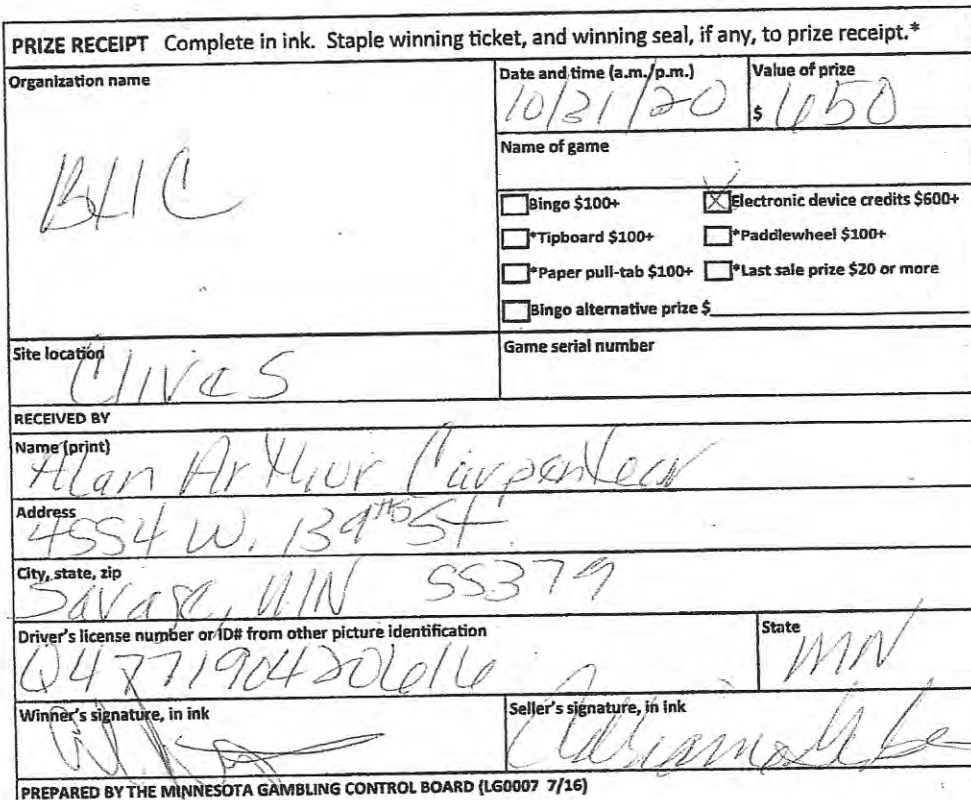 PRIZE RECEIPT Complete in ink. Staple winning ticket, and winning seal, if any, to prize receipt.*
Organization name
BHC
Date and time (a.m./p.m.)
10/31/20
Value of prize
$ 650
Name of game
Bingo $100+
Electronic device credits $600+
*Tipboard $100+
*Paddlewheel $100+
*Paper pull-tab $100+
*Last sale prize $20 or more
Bingo alternative prize $
Site location
Clives
Game serial number
RECEIVED BY
Name (print)
Alan Arthur Carpentear
Address
4554 W. 139th St.
City, state, zip
Savage, MN 55379
Driver's license number or ID# from other picture identification
Q477190420616
State
MN
Winner's signature, in ink
Seller's signature, in ink
PREPARED BY THE MINNESOTA GAMBLING CONTROL BOARD (LG0007 7/16)